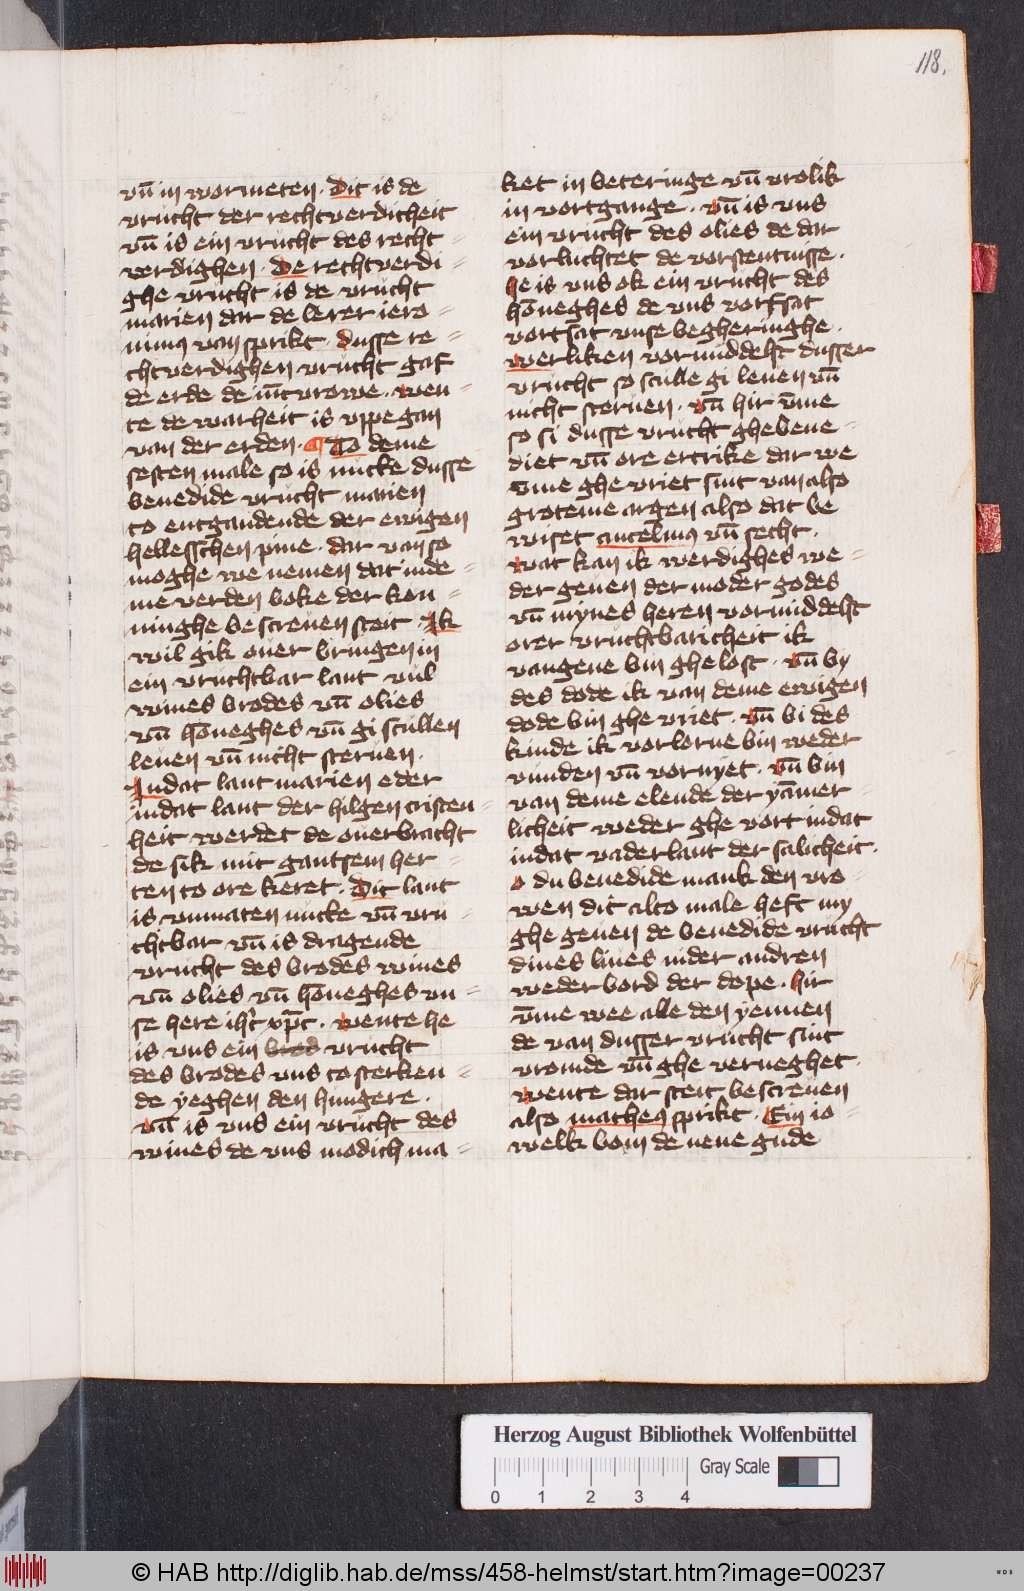 118.
vn̄ in vormeten. Dit is de
vrucht der rechtverdicheit
vn̄ is ein vrucht des recht =
verdighen. De rechtverdi =
ghe vrucht is de vrucht
marien dar de lerer iero =
nimꝰ van sprikt. Dusse re =
chtverdighen vrucht gaf
de erde de iūcvrowe. wen =
te de warheit is vppegan
van der erden. ¶ To deme
sesten male so is nucke dusse
benedide vrucht marien
to entgandende der ewigen
hellesschen pine. dar van so
moghe we nemen dat inde =
me verden boke der kon =
ninghe bescreuen steit. Ik
wil gik ouer bringen in
ein vruchtbar lant vul
wines brodes vn̄ olies
vn̄ hōneghes vn̄ gi scullen
leuen vn̄ nicht steruen.
Indat lant marien eder
indat lant der hilgen cristen =
heit werdet de ouerbracht
de sik mit gantsem her =
ten to ore keret. Dit lant
is vnmaten nucke vn̄ vru =
chtbar vn̄ is dragende
vrucht des brodes wines
vn̄ olies vn̄ hōneghes vn =
se here ih̄c xp̄c. wente he
is vns ein brod vrucht
des brodes vns to sterken =
de yeghen den hungere.
vn̄ is vns ein vrucht des
wines de vns modich ma =
ket in beteringe vn̄ vrolik
in vortgange. vn̄ is vns
ein vrucht des olies de dar
vorluchtet de vorstentnisse.
he is vns ok ein vrucht des
hōneghes de vns
vortsat vnse begheringhe.
werliken vormiddelst dusser
vrucht so sculle gi leuen vn̄
nicht steruen. vn̄ hir v̄me
so si dusse vrucht ghebene =
diet vn̄ ore ertrike dar we
v̄me ghe vriet sint van also
groteme argen also dat be
wiset ancelmꝰ vn̄ secht.
wat kan ik werdighes we =
der geuen der moder godes
vn̄ mynes heren vormiddelst
orer vruchtbaricheit ik
vangene bin ghelost. vn̄ by
des dode ik van deme ewigen
dode bin ghe vriet. vn̄ bi des
kinde ik vorlorne bin weder
vunden vn̄ vornyet. vn̄ bin
van deme elende der yāmer =
licheit weder ghe vort indat
indat vaderlant der salicheit.
o du benedide mank den vro =
wen dit alto male heft my
ghe geuen de benedide vrucht
dines liues inder andren
weder bord der dope. hir
v̄me wee alle den yennen
de van dusser vrucht sint
vromde vn̄ ghe verneghet.
wente dar steit bescreuen
also matheꝰ sprikt. Ein io =
welk bom de nene gude
Herzog August Bibliothek Wolfenbüttel
Gray Scale
0 1 2 3 4
© HAB http://diglib.hab.de/mss/458-helmst/start.htm?image=00237